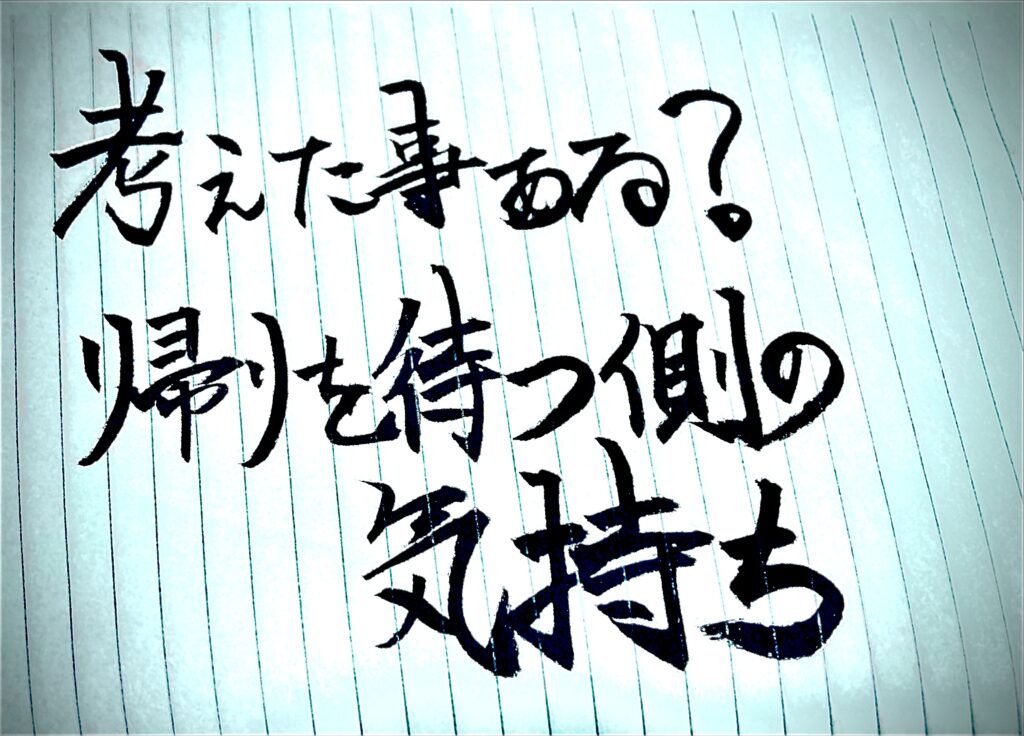 考えた事ある?
帰りを待つ側の
気持ち